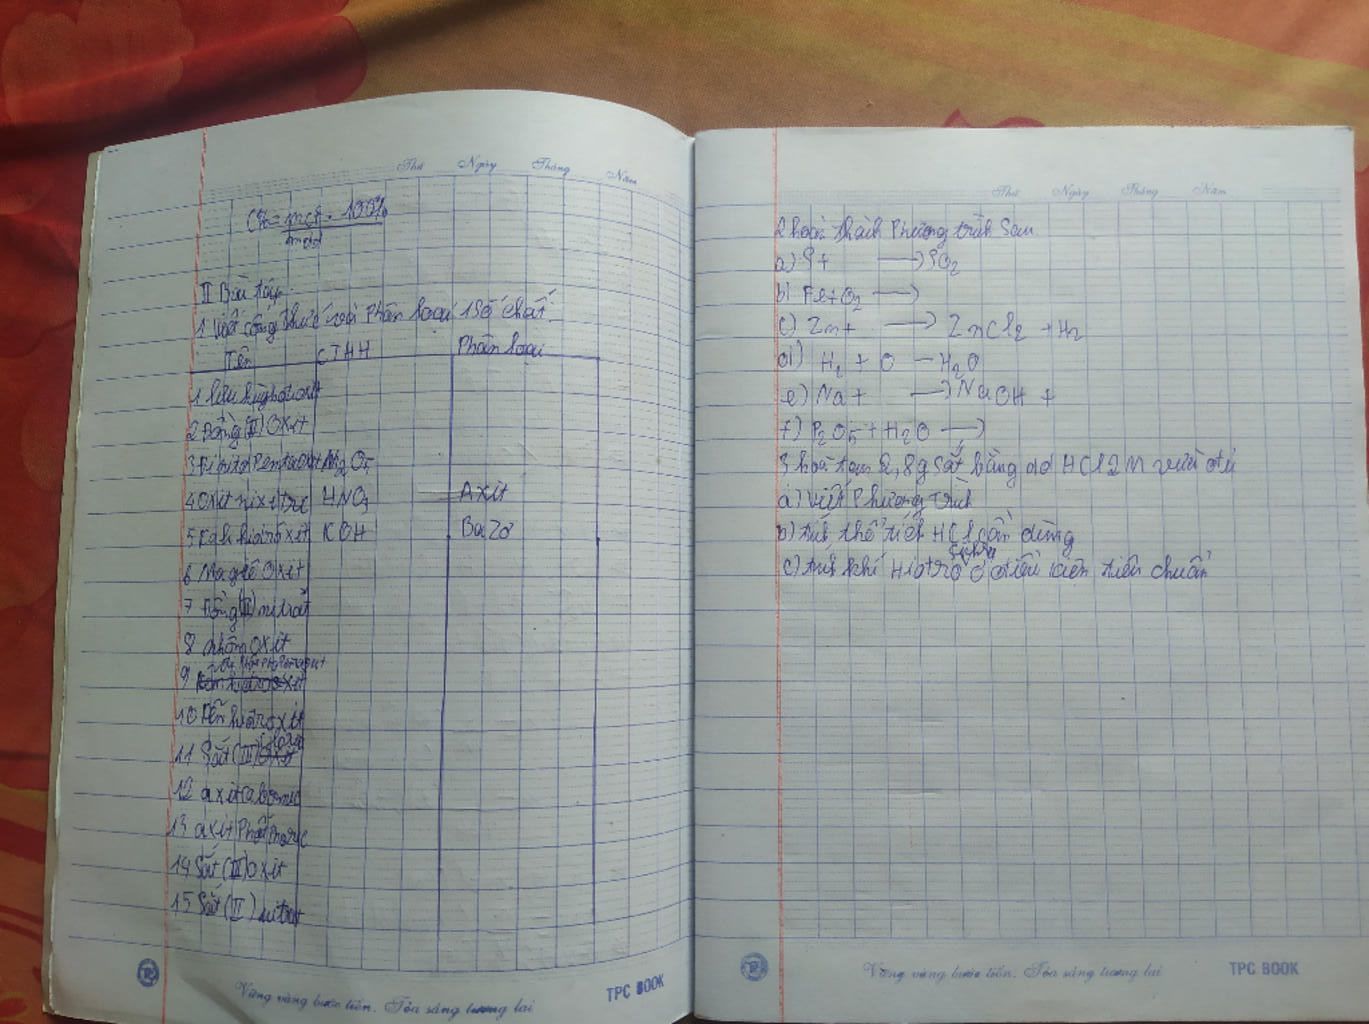 Thứ Ngày Tháng Năm
C% = mct . 100%
mdd
II Bài tập
1 Viết công thức và Phân loại 1 số chất
Tên CTHH Phân loại
1
2 Đồng (II) Oxit
3 Pentaoxit N2O5
4 Oxit nixitric HNO3 Axit
5 Kali hiđroxit KOH Bazơ
6 Magiê Oxit
7 Đồng (II) nitrat
8 nhôm oxit
9
10 hiđroxit
11 Sắt (III)
12 axit cacbonic
13 axit Photphoric
14 Sắt (III) Oxit
15 Sắt (II) nitrat
Vững vàng bước tiến. Tỏa sáng tương lai TPC BOOK
Thứ Ngày Tháng Năm
2 hoàn thành Phương trình Sau
a) S + → SO2
b) Fe + O2 →
c) Zn + → ZnCl2 + H2
d) H2 + O — H2O
e) Na + → NaOH +
f) P2O5 + H2O →
3 hoà tan 2,8g Sắt bằng dd HCl 2M vừa đủ
a) Viết Phương trình
b) tính thể tích HCl cần dùng
c) tính khí Hiđrô ở điều kiện tiêu chuẩn
Vững vàng bước tiến. Tỏa sáng tương lai TPC BOOK